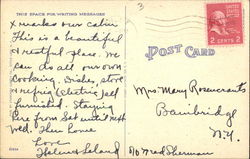 THIS SPACE FOR WRITING MESSAGES
X marks our cabin
This is a beautiful
restful place. We
can do all our own
cooking. Dishes, stove
refrig (electric) all
furnished. Staying
here from Sat until next
Wed. Then home
Love
POST CARD
2 CENTS 2
Mrs Mary Rosencrants
Bainbridge
N.Y.